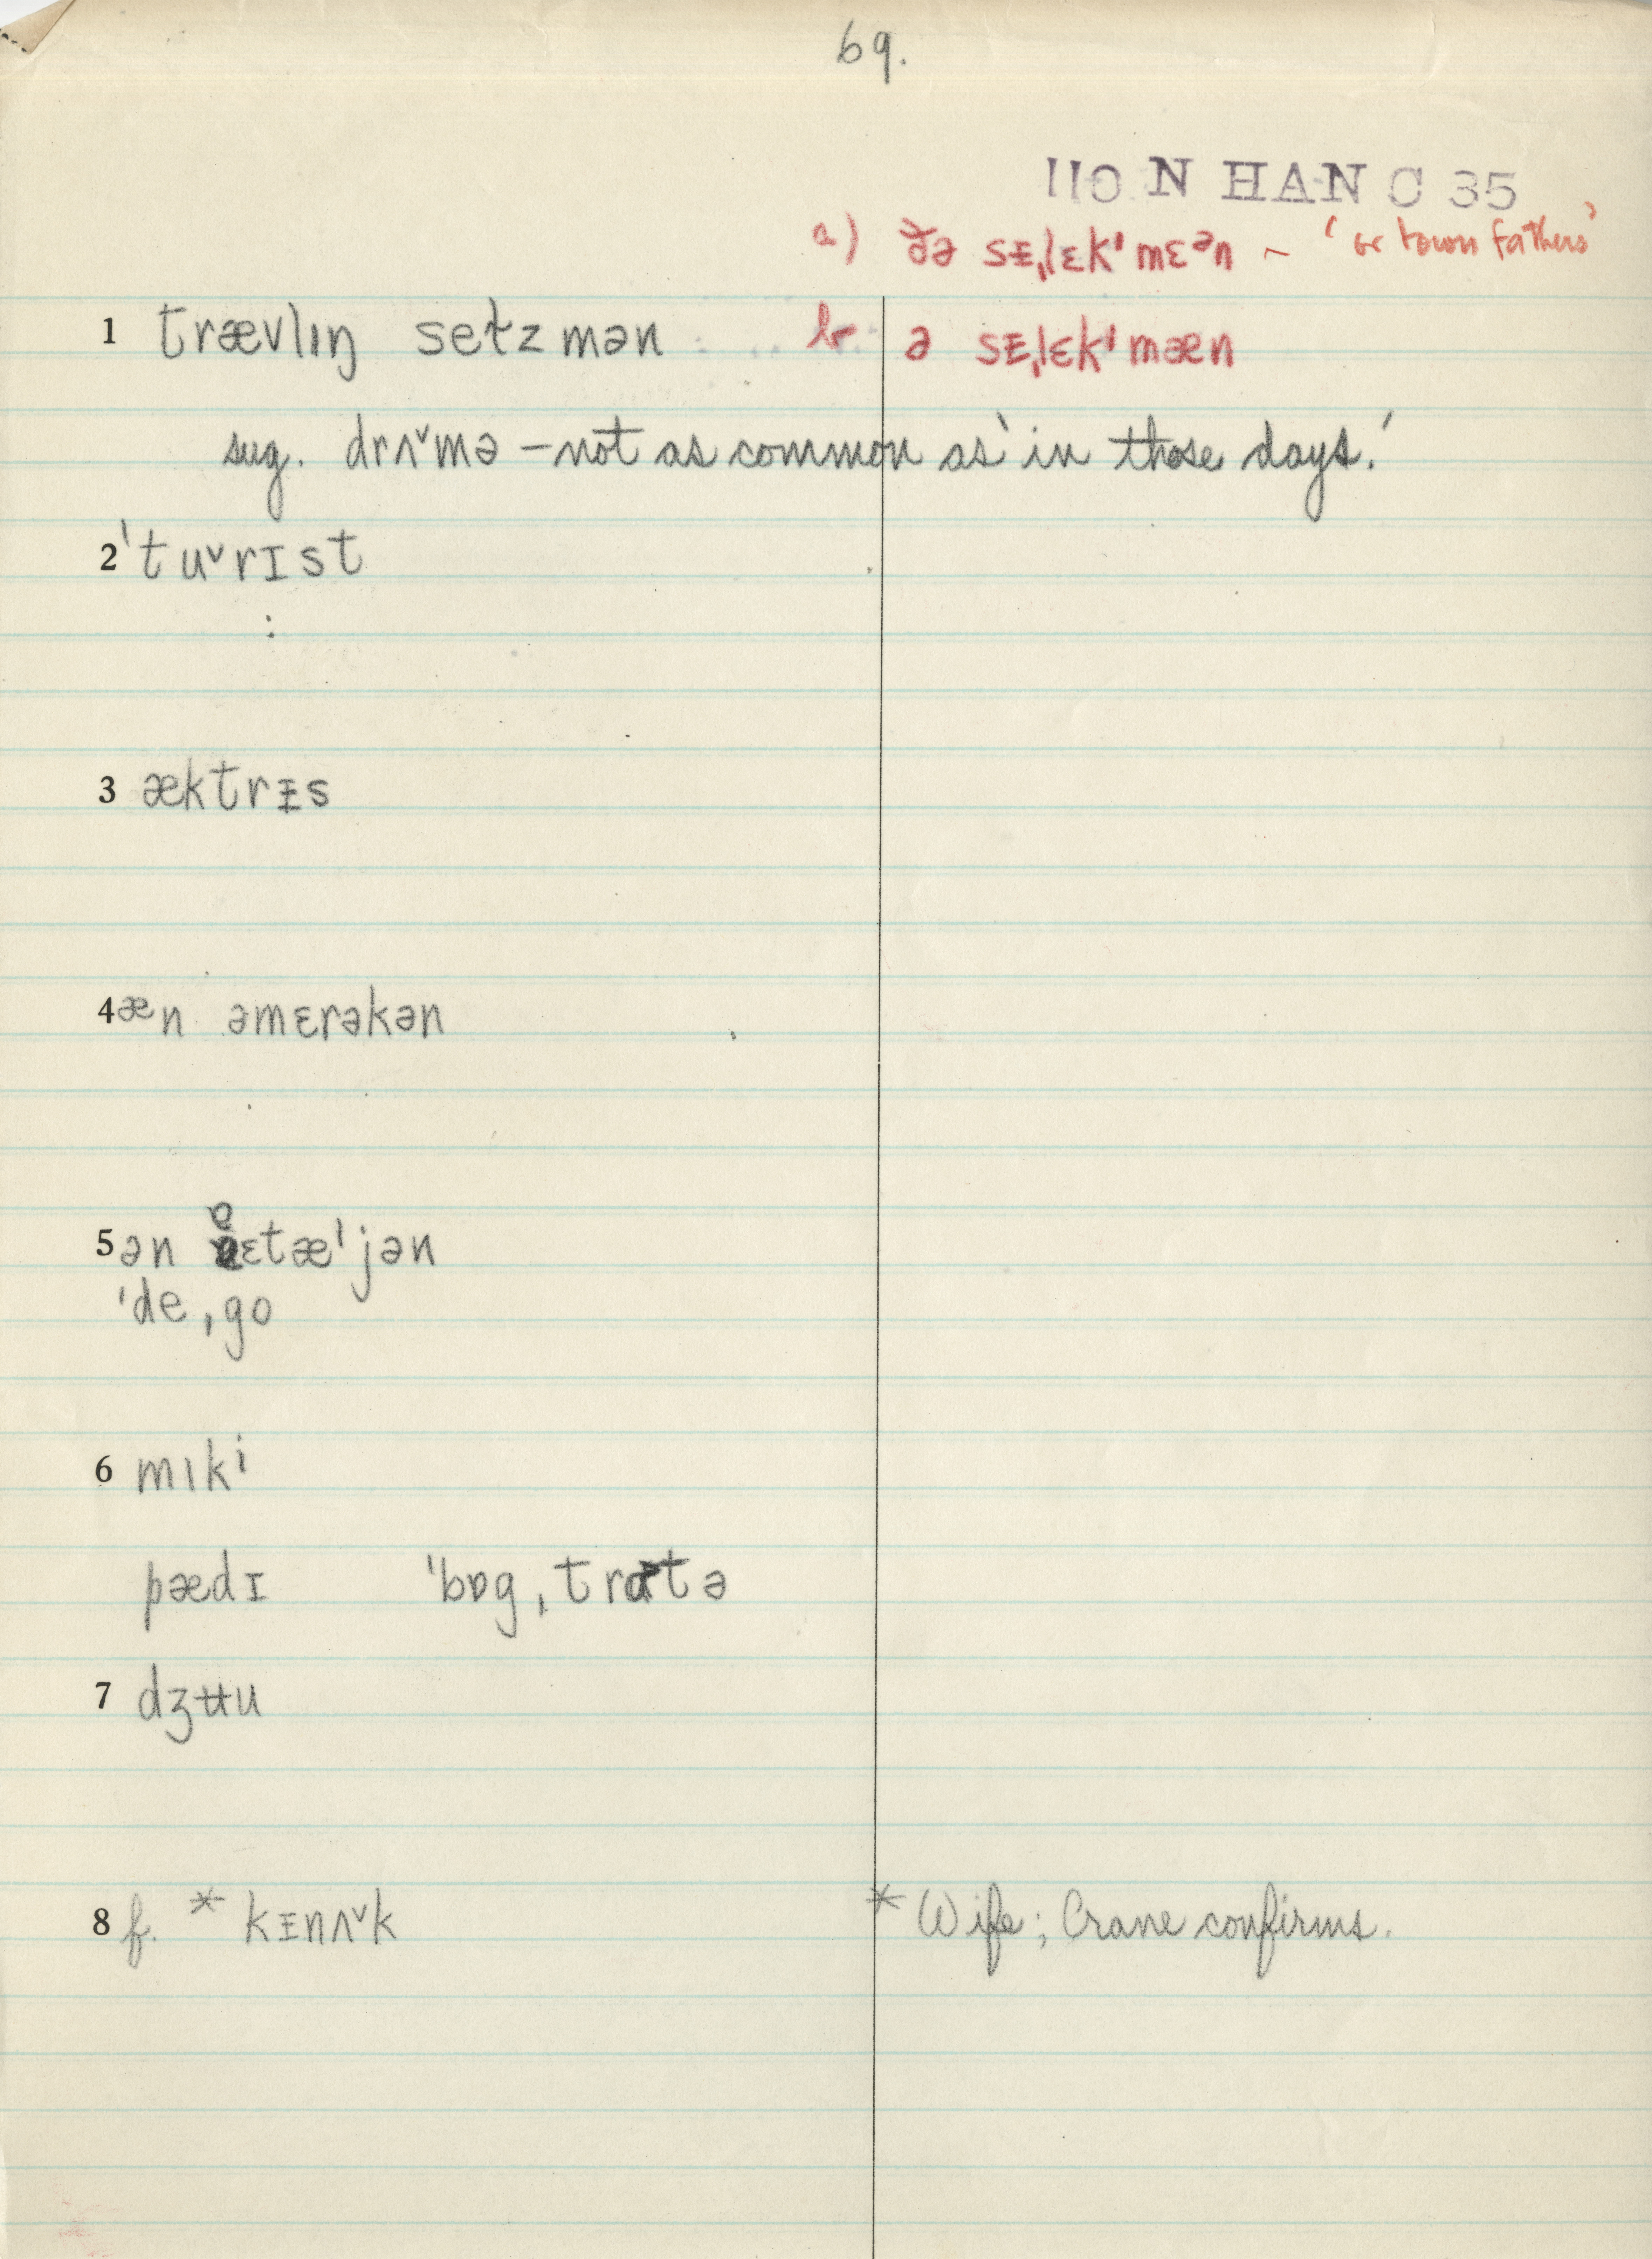 69.
110 N HAN C 35
a) ðə sᵻˌlɛkˈmɛᵊn ~ 'or town fathers'
1 trævlɪŋ seɫzmən b. ə sᵻˌlɛkˈmæn
sug. drʌˇmə – not as common as 'in those days.'
2 ˈtuˇrɪst
3 æktrᵻs
4 æn əmɛrəkən
5 ən ɛtæˈjən
ˈdeˌgo
6 mɪki
pædɪ ˈbɒgˌtratə
7 dʒʉu
8 f. * kᵻnʌˇk * Wife; Crane confirms.